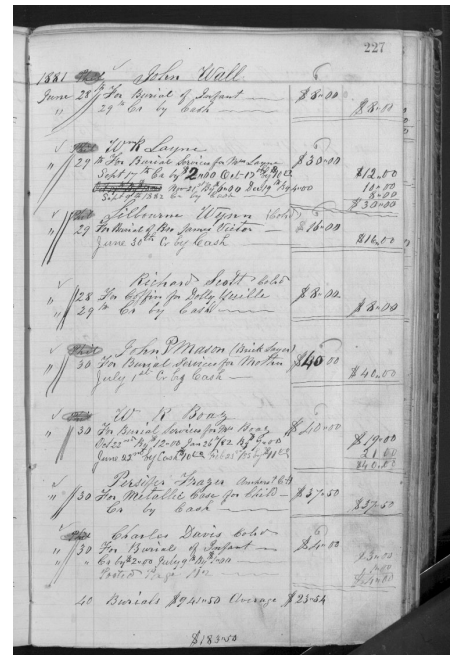 227
1881 John Wall
June 28th For Burial of Infant $8.00
" 29th Cr by Cash $8.00
Wm R Layne
" 29th For Burial Services for Mrs Layne $30.00
Sept 17th Cr by $12.00 Oct 17th by $10.00 $12.00
Nov 21st Dec 19th By 4.00 10.00
Sept 1882 Cr by Cash 8.00
$30.00
Wynn (Cold)
" 29 For Burial of Bro James Victor $16.00
June 30th Cr by Cash $16.00
Richard Scott Cold
" 28 For Coffin for Dolly $8.00
" 29th Cr by Cash $8.00
John P Mason (Brick Layer)
" 30 For Burial Services for Mother $40.00
July 1st Cr by Cash $40.00
W R Boaz
" 30 For Burial Services for Mrs Boaz $40.00
Oct 22nd By $12.00 Jan 26th/82 By $7.00 $19.00
June 23rd by Cash $10 Feb 25th by $11 21.00
$40.00
Persifer Frazer Amherst C.H.
" 30 For Metallic Case for Child $37.50
Cr by Cash $37.50
Charles Davis Cold
" 30 For Burial of Infant $4.00
" Cr by $2.00 July 9th By
Posted Page
$4.00
40 Burials $941.50 Average $23.54
$183.50